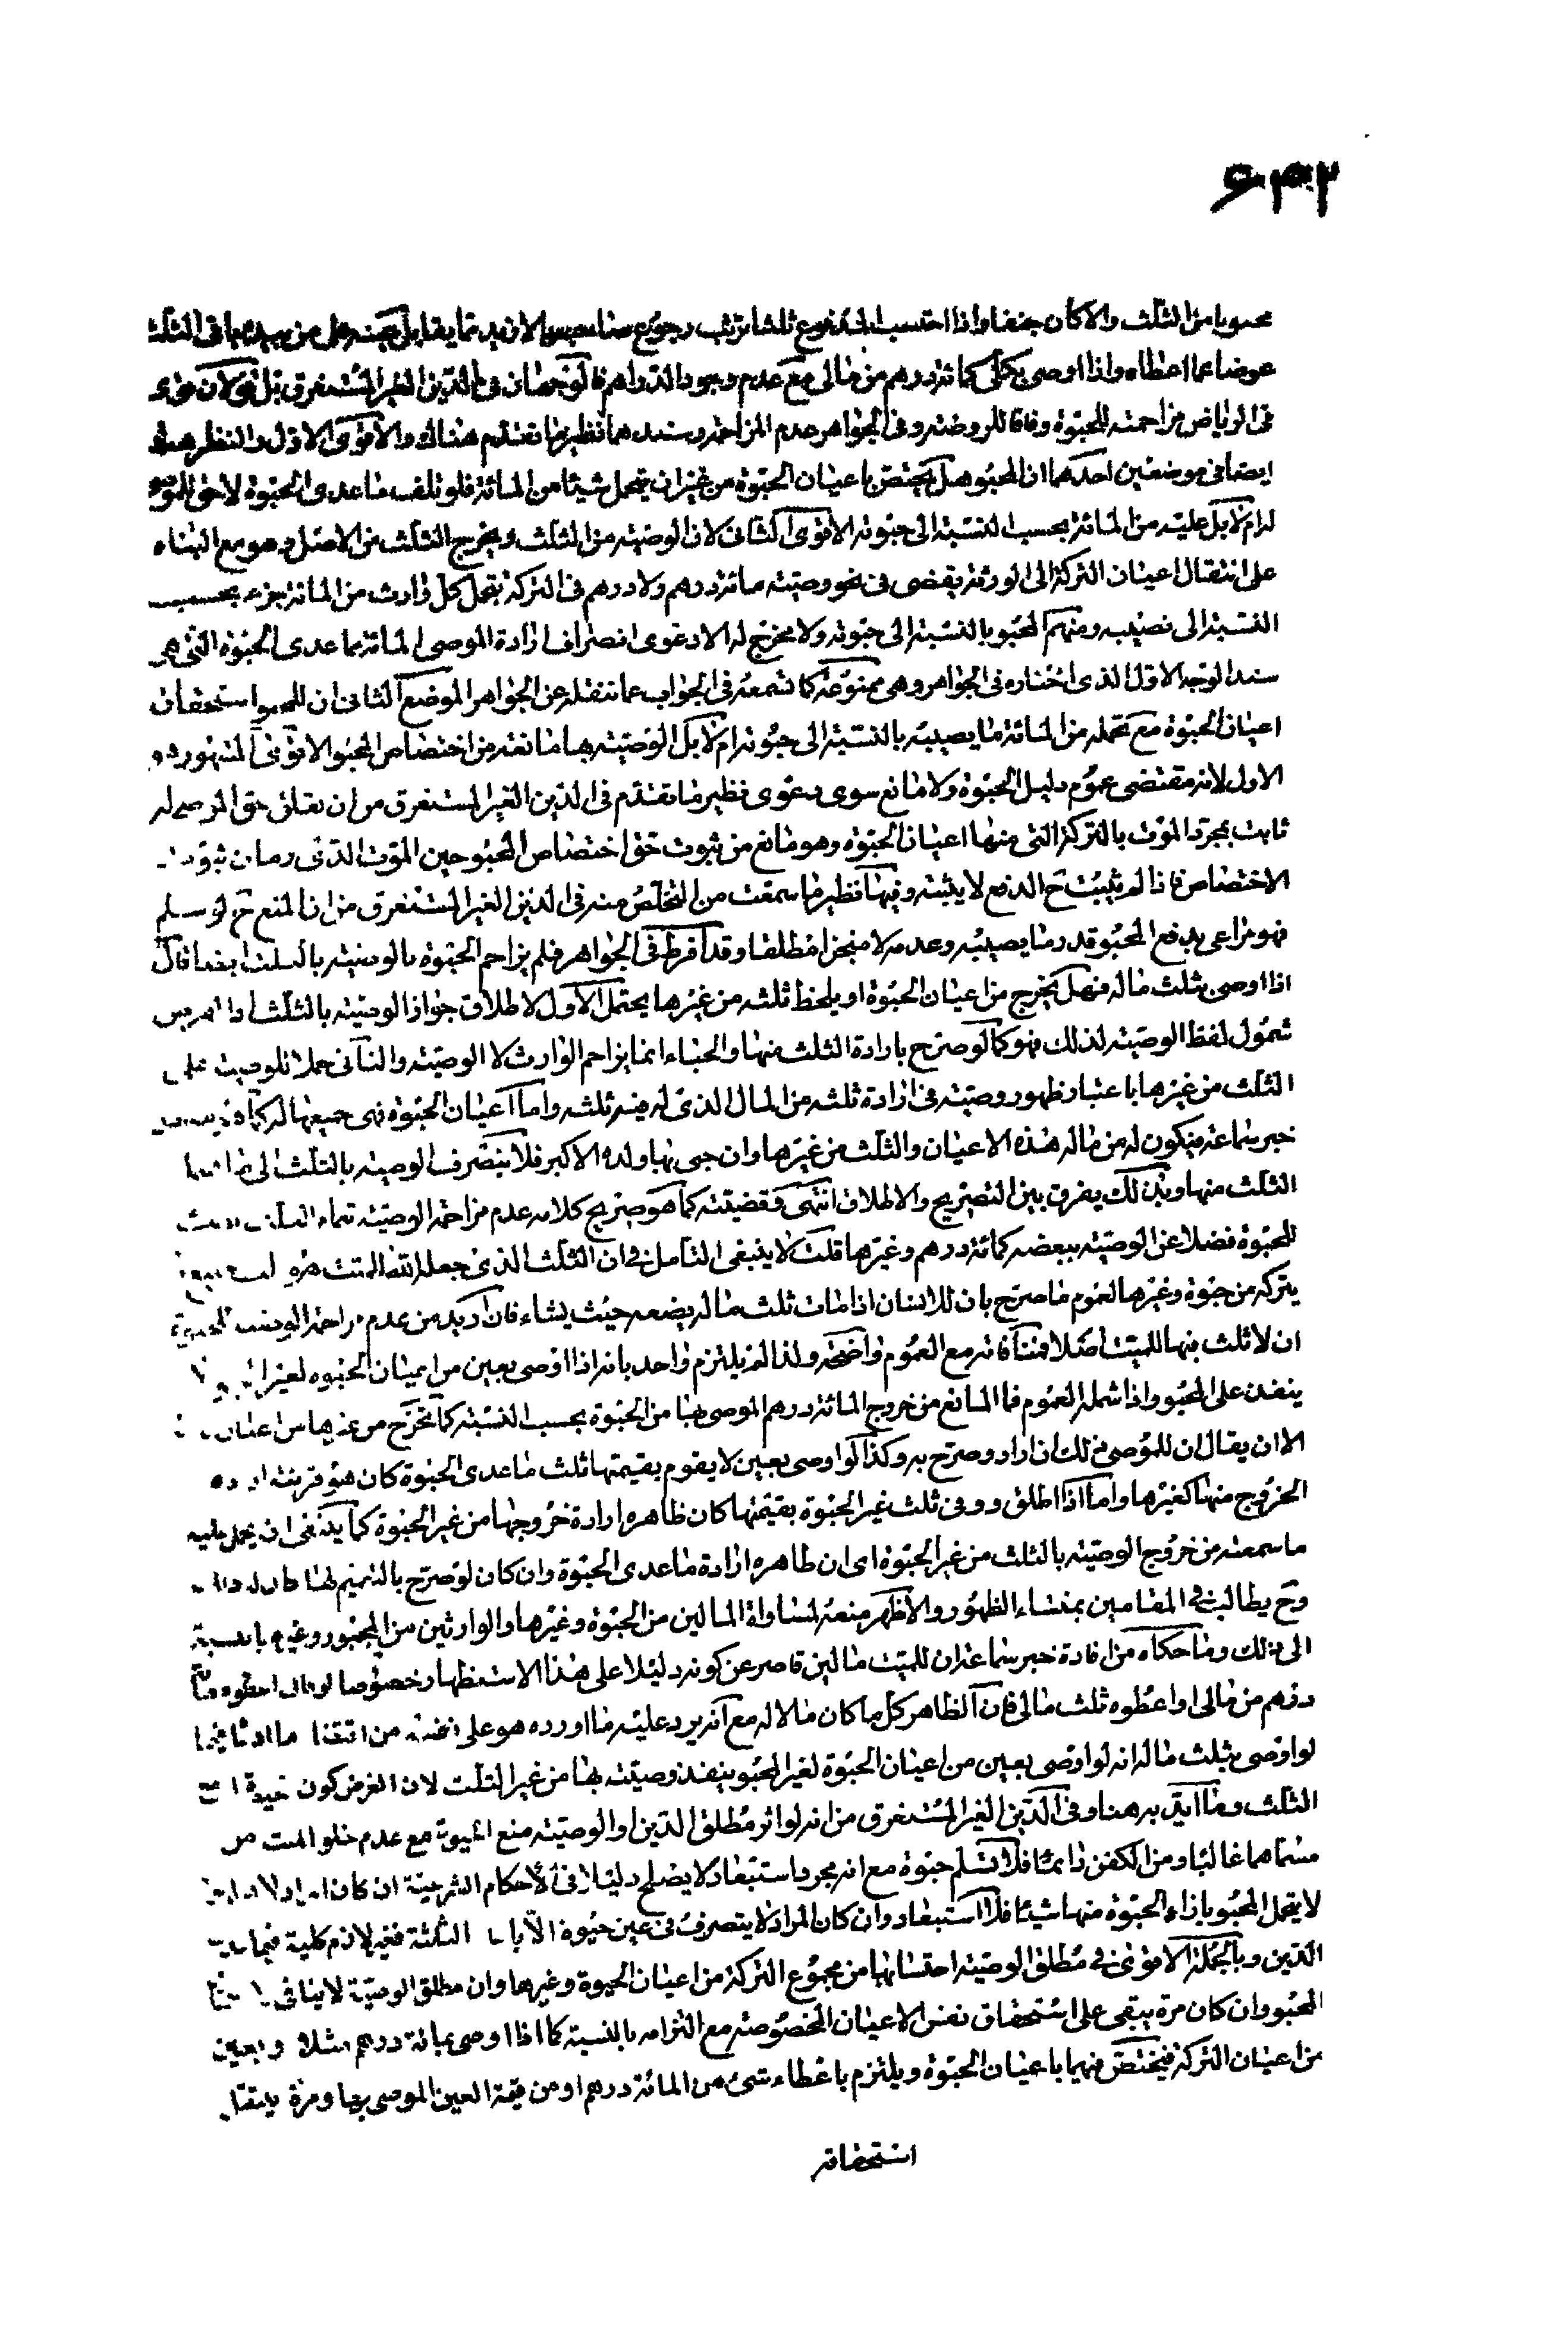 محسوبا من الثلث والا كان جنفا واذا احتسب المدفوع ثلثا ترتب رجوع مما يقابل من الثلث
عوضا عما اعطاه واذا اوصى بكلى كمائة درهم من مالى مع عدم وجود الدراهم فالوجهان فى الدين الغير المستغرق
فى الرياض مزاحمته للحبوة وفاقا للروضة وفى الجواهر عدم المزاحمة وسندهما نظير ما تقدم هناك والاقوى الاول والنظر هنا
ايضا فى موضعين احدهما ان المحبو هل يختص باعيان الحبوة من غير ان يتحمل شيئا من المائة فلو تلف ما عدى الحبوة لاحق للموصى
له ام لا بل عليه من المائة بحسب النسبة الى حبوته الاقوى الثانى لان الوصية من الثلث ويخرج الثلث من الاصل وهو مع البناء
على انتقال اعيان التركة الى الورثة يقضى فى نحو وصيته مائة درهم ولا درهم فى التركة بتحمل كل وارث من المائة جزء بحسب
النسبة الى نصيبه ومنهم المحبو بالنسبة الى حبوته ولا مخرج له الا دعوى انصراف ارادة الموصى المائة بما عدى الحبوة التى هى
سند الوجه الاول الذى اختاره فى الجواهر وهى ممنوعة كما تسمعه فى الجواب عما ننقله عن الجواهر الموضع الثانى ان للمحبو استحقاق
اعيان الحبوة مع تحمله من المائة ما يصيبه بالنسبة الى حبوته ام لا بل الوصية بها مانعة من اختصاص المحبو الاقوى المشهور هو
الاول لانه مقتضى عموم دليل الحبوة ولا مانع سوى دعوى نظير ما تقدم فى الدين الغير المستغرق من ان تعلق حق الموصى له
ثابت بمجرد الموت بالتركة التى منها اعيان الحبوة وهو مانع من ثبوت حق اختصاص المحبو حين الموت الذى زمان ثبوت
الاختصاص فاذا لم يثبت ح الدفع لا يثبته وفيها نظير ما سمعت من التخلص منه فى الدين الغير المستغرق من ان المنع ح لو سلم
فهو مراعى بدفع المحبو قدر ما يصيبه وعدمه لا منجزا مطلقا وقد افرط فى الجواهر فلم يزاحم الحبوة بالوصية بالثلث ايضا قال
اذا اوصى بثلث ماله فهل يخرج من اعيان الحبوة او يلحظ ثلثه من غيرها يحتمل الاول لاطلاق جواز الوصية بالثلث
شمول لفظ الوصية لذلك فهو كما لو صرح بارادة الثلث منها والحباء انما يزاحم الوارث لا الوصية والثانى حملا للوصية على
الثلث من غيرها باعتبار ظهور وصيته فى ارادة ثلثه من المال الذى له منه ثلثه واما اعيان الحبوة فهى جميعها له كما
خبر سماعة فيكون له من ماله هذه الاعيان والثلث من غيرها وان حبى بها ولده الاكبر فلا ينصرف الوصية بالثلث الى
الثلث منها وبذلك يفرق بين التصريح والاطلاق انتهى وقضيته كما هو صريح كلامه عدم مزاحمة الوصية تمام الثلث
للحبوة فضلا عن الوصية ببعضه كمائة درهم وغيرها قلت لا ينبغى التامل فى ان الثلث الذى جعله الله للميت هو
يتركه من حبوة وغيرها لعموم ما صرح بان للانسان اذا مات ثلث ماله يضعه حيث يشاء فان اريد من عدم مزاحمة الوصية للحبوة
ان لا ثلث فيها للميت اصلا فمنافاته مع العموم واضحة ولذا لم يلتزم واحد بانه اذا اوصى بعين من اعيان الحبوة لغير
ينفذ على المحبو واذا شمله العموم فما المانع من خروج المائة درهم الموصى بها من الحبوة بحسب النسبة كما تخرج من غيرها من اعيان
الا ان يقال ان للموصى ذلك اذا اراد وصرح به وكذا لو اوصى بعين لا يقوم بقيمتها ثلث ما عدى الحبوة كان هو قرينة
الخروج منها كغيرها واما اذا اطلق ووفى ثلث غير الحبوة بقيمتها كان ظاهره ارادة خروجها من غير الحبوة كما ينبغى ان يحمل عليه
ما سمعته من خروج الوصية بالثلث من غير الحبوة اى ان ظاهره ارادة ما عدى الحبوة وان كان لو صرح بالتعميم لها كان له ذلك
وح يطالب فى المقامين بمنشاء الظهور والاظهر منعه لمساواة المالين من الحبوة وغيرها والوارثين من المحبو وغيره بالنسبة
الى ذلك وما حكاه من افادة خبر سماعة ان للميت مالين قاصر عن كونه دليلا على هذا الاستظهار خصوصا لو قال اعطوه مائة
درهم من مالى او اعطوه ثلث مالى فان الظاهر كل ما كان مالا له مع انه يرد عليه ما اورده هو على
لو اوصى بثلث ماله انه لو اوصى بعين من اعيان الحبوة لغير المحبو ينفذ وصيته بها من غير الثلث لان الفرض كون
الثلث وما ايد به هنا وفى الدين الغير المستغرق من انه لو اثر مطلق الدين او الوصية منع الحبوة مع عدم خلو الميت من
مسماهما غالبا ومن الكفن دائما فلا تسلم حبوة مع انه مجرد استبعاد لا يصلح دليلا فى الاحكام الشرعية ان كان
لا يتحمل المحبو بازاء الحبوة منها شيئا فلا استبعاد وان كان المراد لا يتصرف فى عين حبوة الا الثلثة فغير لازم كلية
الدين وبالجملة الاقوى فى مطلق الوصية احتسابها من مجموع التركة من اعيان الحبوة وغيرها وان مطلق الوصية لا ينافى
المحبو وان كان مرة يبقى على استحقاق نفس الاعيان المخصوصة مع التزامه بالنسبة كما اذا اوصى بمائة درهم مثلا وبعين
من اعيان التركة فيختص فيهما باعيان الحبوة ويلتزم باعطاء شىء من المائة درهم او من قيمة العين الموصى بها ومرة ينتقل
استحقاقه